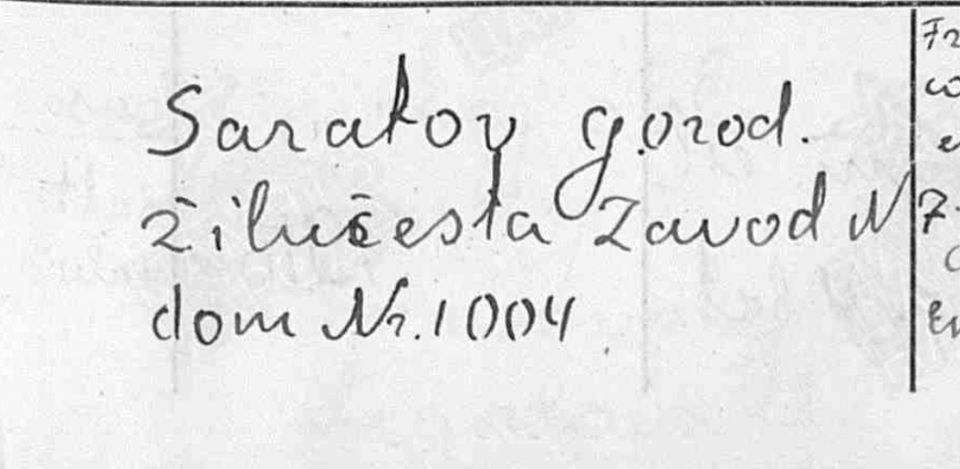 Saratov gorod.
Žilučesta Zavod N
dom Nr. 1004